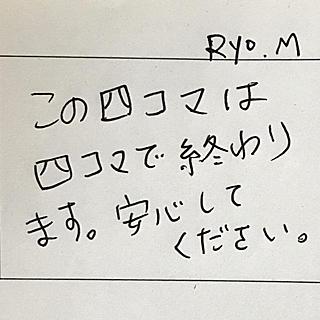 Ryo.M
この四コマは
四コマで終わり
ます。安心して
ください。